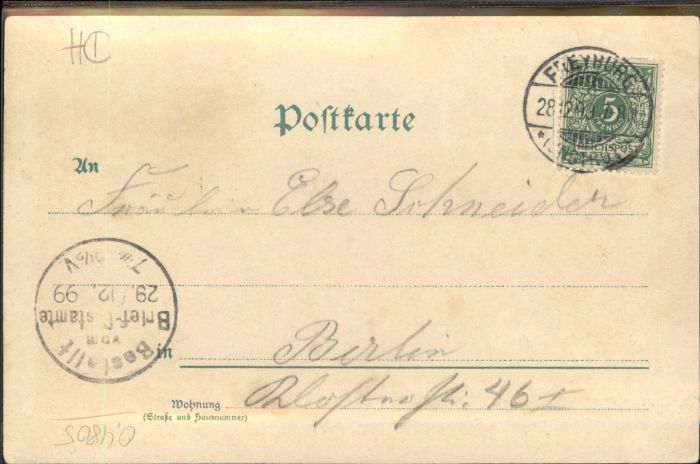 HD
FREYBURG
28.12.99
*(UNSTRUT)
5
REICHSPOST
Postkarte
An
Fräulein Else Schneider
Bestellt
vom
Brief-Postamte
29./12. 99
7
V.
in Berlin
Wohnung
(Straße und Hausnummer)
46 I